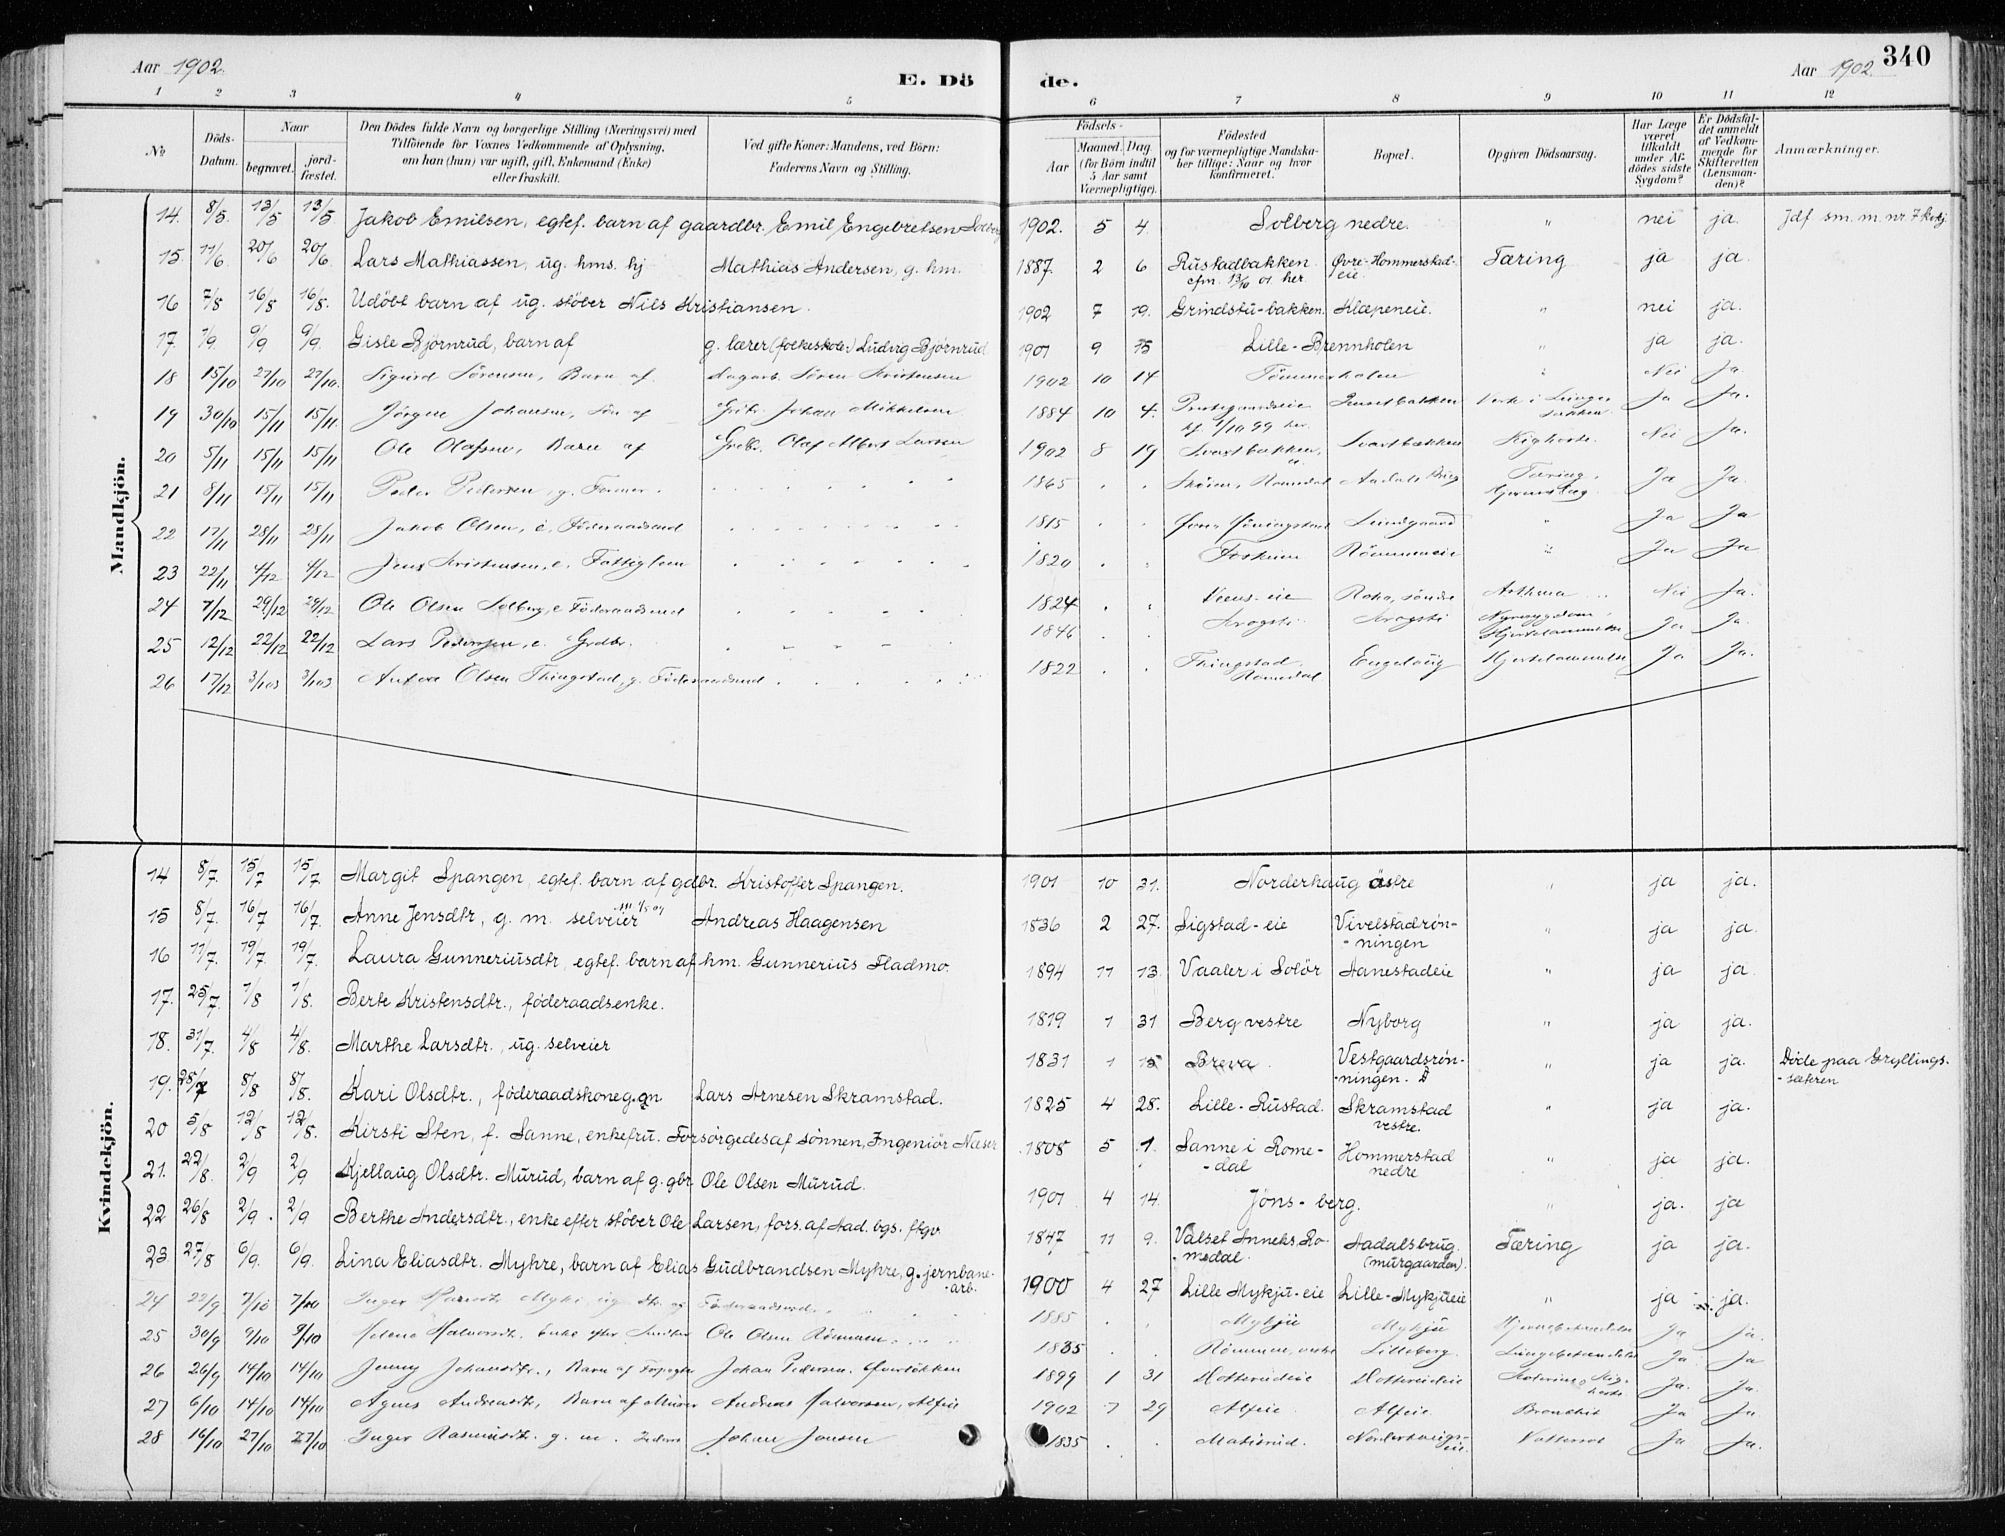 Aar 1902.
E. Dö
de.
Aar 1902.
340
1 2 3 4 5 6 7 8 9 10 11 12
No
Döds-Datum.
Naar
begravet.
jord-fæstet.
Den Dödes fulde Navn og borgerlige Stilling (Næringsvei) med
Tilföiende for Voxnes Vedkommende af Oplysning,
om han (hun) var ugift, gift, Enkemand (Enke)
eller fraskilt.
Ved gifte Koner: Mandens, ved Börn:
Faderens Navn og Stilling.
Födsels-
Aar
Maaned. Dag
(for Börn indtil
5 Aar samt
Værnepligtige).
Födested
og for værnepligtige Mandska-
ber tillige: Naar og hvor
konfirmeret.
Bopæl.
Opgiven Dödsaarsag.
Har Læge
været
tilkaldt
under Af-
dödes sidste
Sygdom?
Er Dödsfal-
det anmeldt
af Vedkom-
mende for
Skifteretten
(Lensman-
den)?
Anmærkninger.
Mandkjön.
14. 8/5 13/5 13/5 Jakob Emilsen, egtef. barn af gaardbr. Emil Engebretsen Solberg 1902. 5 4. Solberg nedre. " nei ja. Jdf sm. m. nr. 7 kvkj
15. 11/6 20/6 20/6. Lars Mathiassen, ug. hms. hj Mathias Andersen, g. hm. 1887. 2 6 Rustadbakken cfm. 13/10 01 her. Øvre-Hommerstad-eie. Tæring ja ja.
16 7/8 16/8 16/8. Udöbt barn af ug. stöber Nils Kristiansen. 1902 7 19. Grindstu-bakken. Klæpeneie. " nei ja.
17. 1/9. 9/9 9/9. Gisle Björnrud, barn af g. lærer (folkeskole) Ludvig Björnrud 1901 9 15 Lille-Brennholen " ja ja.
18 15/10 27/10 27/10. Sigurd Sörensen, Barn af Dagarb. Sören Kristensen 1902 10 14 Tömmerholen " Nei Ja.
19 30/10 15/11 15/11. Jörgen Johansen, Sön af Grbr. Johan Mikkelsen 1884 10 4. Præstegaardseie kf. 1/10 99 her. Ja Ja.
20 5/11 15/11 15/11 Ole Olafsen, Barn af Grdbr. Olaf Albert Larsen 1902 8 19 Svartbakken, Svartbakken Kighoste. Nei Ja.
21 8/11 15/11 15/11 Peder Pedersen, g. Former. 1865 . . Romedal Aadals Brug Tæring, Hjerneslag. Ja Ja.
22 17/11 28/11 28/11 Jakob Olsen, e. Föderaadsmd 1815 . . Lundgaard " Ja Ja
23 22/11 4/12 4/12 Jens Kristensen, e. Fattiglem 1820 . . Foskum Römmeneie " Ja Ja
24 7/12 29/12 29/12 Ole Olsen Solberg, e. Föderaadsmd 1824 . . Viens-eie Roko, söndre Asthma Nei Ja.
25 12/12 22/12 22/12 Lars Pedersen, e. Grdbr. 1846 . . Krogsti Krogsti Nyresygdom, Hjertelammelse Ja Ja.
26 17/12 3/1 03 3/1 03 Anders Olsen Thingstad, g. Föderaadsmd 1822 . . Thingstad, Romedal Engelaug Hjertelammelse Ja Ja.
Kvindekjön.
14 8/7. 15/7 15/7. Margit Spangen, egtef. barn af gdbr. Kristoffer Spangen. 1901 10 31. Norderhaug östre " ja ja.
15 8/7. 16/7 16/7. Anne Jensdtr, g. m. selveier Andreas Haagensen 1836 2 27. Sigstad-eie Vivelstadrön-ningen " ja ja.
16 11/7. 19/7. 19/7. Laura Gunneriusdtr, egtef. barn af hm. Gunnerius Fladmo. 1894 11 13. Vaaler i Solör Aanestadeie " ja ja.
17. 25/7. 1/8 1/8. Berte Kristensdtr., föderaadsenke. 1819 1 31 Berg vestre Nyborg " ja ja.
18. 31/7. 4/8 4/8. Marthe Larsdtr., ug. selveier 1831 1 15 Breva. Vestgaardsrön-ningen. " ja ja. Döde paa Gryllings-sætren
19. 28/7 8/8 8/8. Kari Olsdtr., föderaadskone g. gn Lars Arnesen Skramstad. 1825 4 28. Lille-Rustad. Skramstad vestre. " ja ja.
20 5/8 12/8 12/8. Kirsti Sten, f. Sanne, enkefru. Forsörgedes af sönnen, Ingeniör Næser 1808 5 1. Sanne i Rome-dal Hommerstad nedre " ja ja.
21. 22/8. 2/9 2/9 Kjellaug Olsdtr. Murud, barn af g. gbr. Ole Olsen Murud. 1901 4 14. Jöns-berg. " ja. ja
22 26/8 2/9. 2/9 Berthe Andersdtr., enke efter stöber Ole Larsen, fors. af Aad. bgs. ftgv. 1847 11 9. Valset Anneks Ro-medal. Aadalsbrug. (murgaarden). Tæring ja ja.
23. 27/8 6/9. 6/9. Lina Eliasdtr. Myhre, barn af Elias Gudbrandsen Myhre, g. jernbane-arb. 1900 4 27 Lille Mykju-eie Lille-Mykjueie " ja ja.
24 22/9 7/10 7/10 Inger 1885 . . Mykju Mykju Ja ja.
25 30/9 9/10 9/10 Helene Halvorsdt. Enke efter Ole Olsen Römmen 1835 . . Römmen, vestre Lilleberg. Lungebetændelse Ja. Ja
26 26/9 14/10 14/10 Jenny Johansdtr., Barn af Forpagter Johan Pedersen, 1899 1 31 Hotterudeie Hotterudeie Ja. Ja.
27 6/10 14/10 14/10 Agnes Andreasdt., Barn af Murer Andreas Halvorsen, Alfeie 1902 7 29 Alfeie. Alfeie. Bronchit Ja Ja.
28 16/10 27/10 27/10 Inger Rasmusdt. g. m. Johan Jonsen 1835 . . Matisrud. Norderhaugs-eie. Vattersot Ja Ja.